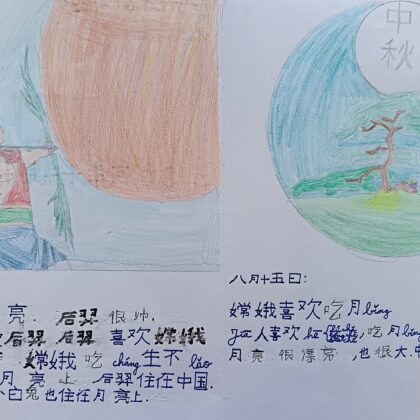 亮. 后羿 很 帅,
后羿 后羿 喜欢 嫦娥
嫦娥 吃 cháng 生不 lǎo
月 亮 上. 后羿住在中国.
小白兔也住在月亮上.
中
秋
八月十五日:
嫦娥喜欢吃月bǐng
人喜欢 , 吃月bǐng
月 亮 很 漂亮, 也 很 大.